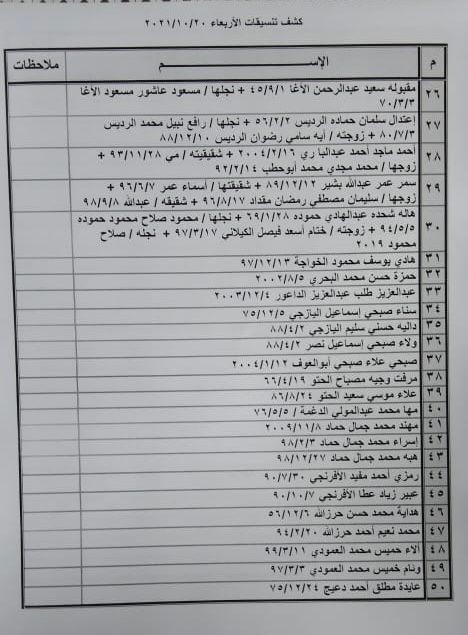 كشف تنسيقات الأربعاء ٢٠٢١/١٠/٢٠
م الإســـــــــم ملاحظات
٢٦ مقبوله سعيد عبدالرحمن الأغا ٤٥/٩/١ + نجلها / مسعود عاشور مسعود الأغا
٧٠/٣/٣
٢٧ إعتدال سلمان حماده الرديس ٥٦/٢/٢ + نجلها / رافع نبيل محمد الرديس
٨٠/٧/٣ + زوجته / أيه سامي رضوان الرديس ٨٨/١٢/١٠
٢٨ أحمد ماجد أحمد عبدالبا ري ٢٠٠٤/٢/١٦ + شقيقيته / مي ٩٣/١١/٢٨ +
زوجها / محمد مجدي محمد أبوحطب ٩٢/٢/١٤
٢٩ سمر عمر عبدالله بشير ٨٩/١٢/١٢ + شقيقتها / أسماء عمر ٩٦/٦/٧ +
زوجها / سليمان مصطفي رمضان مقداد ٩٦/٨/١٧ + شقيقه / عبدالله ٩٨/٩/٨
٣٠ هاله شحده عبدالهادي حموده ٦٩/١/٢٨ + نجلها / محمود صلاح محمود حموده
٩٤/٥/٥ + زوجته / ختام أسعد فيصل الكيلاني ٩٧/٣/١٧ + نجله / صلاح
محمود ٢٠١٩
٣١ هادي يوسف محمود الخواجة ٩٧/١٢/١٣
٣٢ حمزة حسن محمد البحري ٢٠٠٢/٨/٥
٣٣ عبدالعزيز طلب عبدالعزيز الداعور ٢٠٠٣/١٢/٤
٣٤ سناء صبحي إسماعيل اليازجي ٧٥/١٢/٥
٣٥ داليه حسني سليم اليازجي ٨٨/٤/٢
٣٦ ولاء صبحي إسماعيل نصر ٨٨/٤/٢
٣٧ صبحي علاء صبحي أبوالعوف ٢٠٠٤/١/١٢
٣٨ مرفت وجيه مصباح الحتو ٦٦/٤/١٩
٣٩ علاء موسي سعيد الحتو ٨٦/٨/٢٤
٤٠ مها محمد عبدالمولي الدغمة / ٧٦/٥/٥
٤١ مهند محمد جمال حماد ٢٠٠٩/١١/٨
٤٢ إسراء محمد جمال حماد ٩٨/٢/٣
٤٣ هبه محمد جمال حماد ٩٨/١٢/٢٧
٤٤ رمزي أحمد مفيد الأفرنجي ٩٠/٧/٣٠
٤٥ عبير زياد عطا الأفرنجي ٩٠/١٠/٧
٤٦ هداية محمد حسن حرزالله ٥٦/١٢/٦
٤٧ محمد نعيم أحمد حرزالله ٩٤/٢/٢٠
٤٨ ألاء خميس محمد العمودي ٩٩/٣/١١
٤٩ ونام خميس محمد العمودي ٩٧/٣/٣
٥٠ عايدة مطلق أحمد دعيج ٧٥/١٢/٢٤